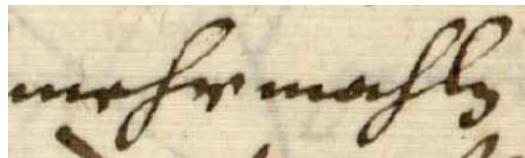 mehrmahlß